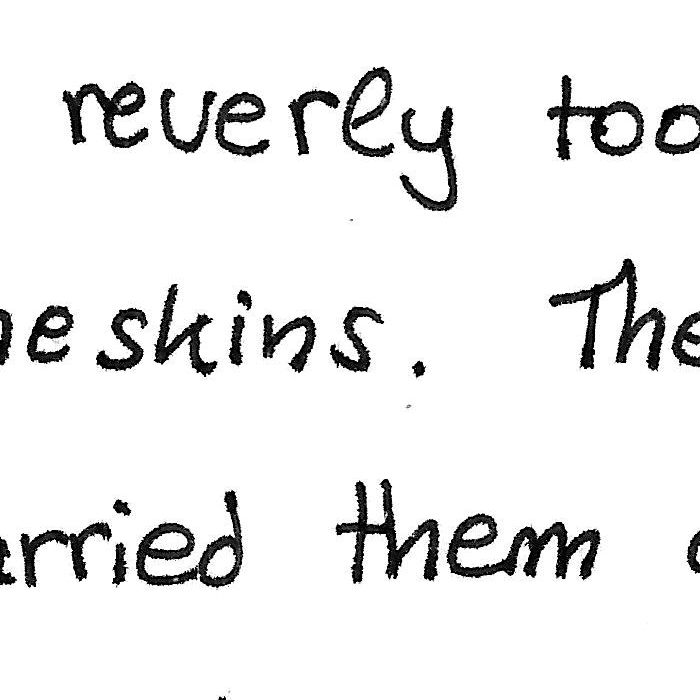 reverly too
he skins. The
arried them